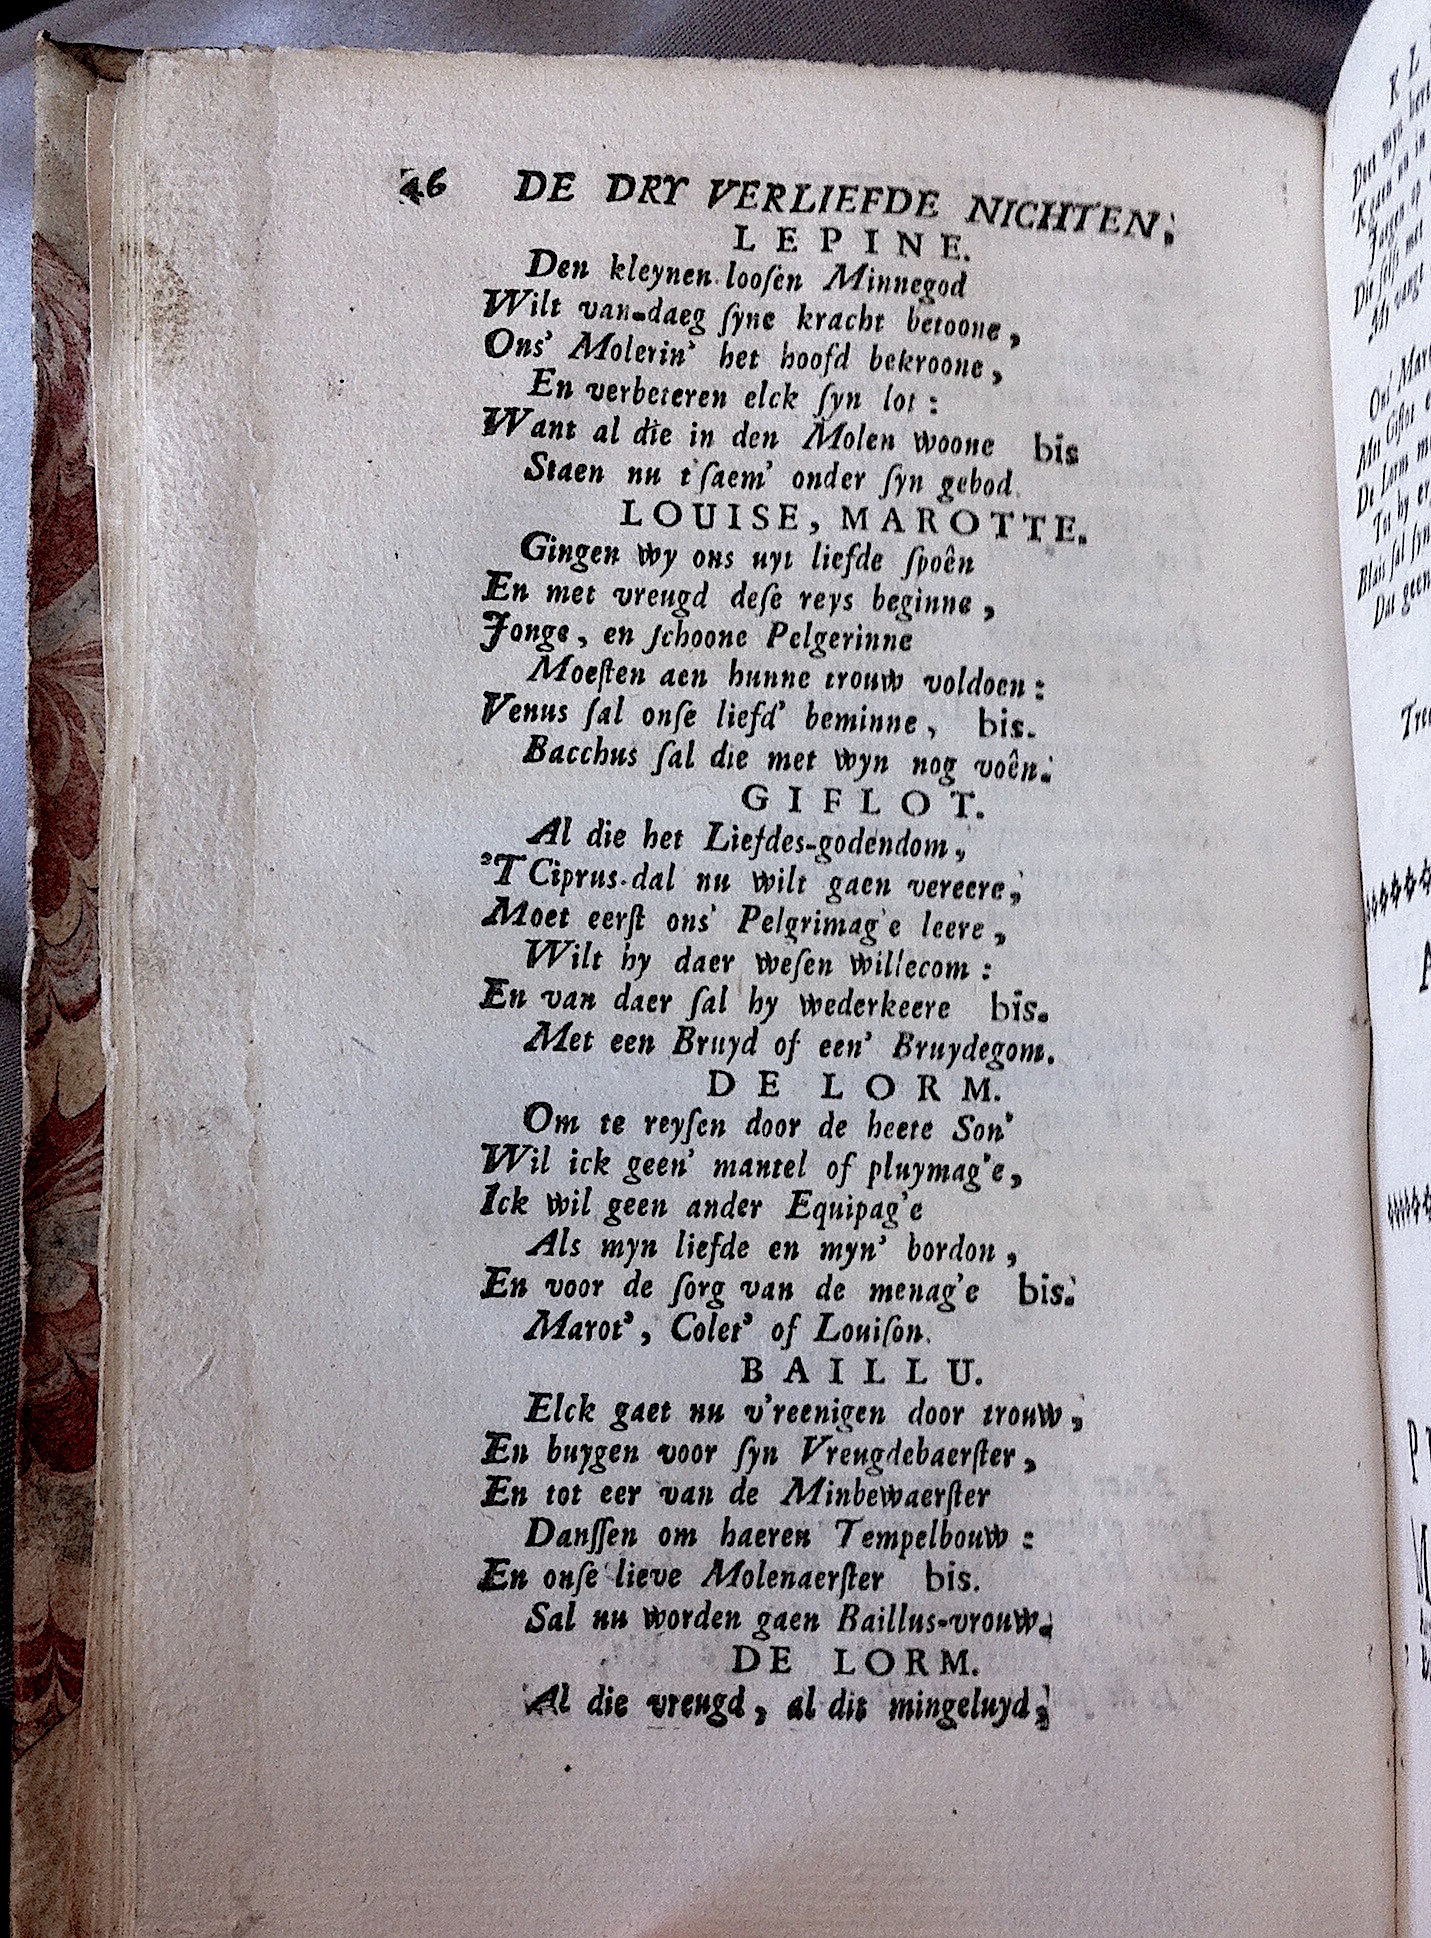 46 DE DRY VERLIEFDE NICHTEN,
LEPINE.
Den kleynen looſen Minnegod
Wilt van-daeg ſyne kracht betoone,
Ons' Molerin' het hoofd bekroone,
En verbeteren elck ſyn lot:
Want al die in den Molen woone bis
Staen nu t'ſaem' onder ſyn gebod.
LOUISE, MAROTTE.
Gingen wy ons uyt liefde ſpoên
En met vreugd deſe reys beginne,
Jonge, en ſchoone Pelgerinne
Moeſten aen hunne trouw voldoen:
Venus ſal onſe liefd' beminne, bis.
Bacchus ſal die met wyn nog voên.
GIFLOT.
Al die het Liefdes-godendom,
'T Ciprus-dal nu wilt gaen vereere,
Moet eerſt ons' Pelgrimag'e leere,
Wilt hy daer weſen willecom:
En van daer ſal hy wederkeere bis.
Met een Bruyd of een' Bruydegom.
DE LORM.
Om te reyſen door de heete Son'
Wil ick geen' mantel of pluymag'e,
Ick wil geen ander Equipag'e
Als myn liefde en myn' bordon,
En voor de ſorg van de menag'e bis.
Marot', Colet' of Louiſon.
BAILLU.
Elck gaet nu v'reenigen door trouw,
En buygen voor ſyn Vreugdebaerſter,
En tot eer van de Minbewaerſter
Danſſen om haeren Tempelbouw:
En onſe lieve Molenaerſter bis.
Sal nu worden gaen Baillus-vrouw.
DE LORM.
Al die vreugd, al dit mingeluyd,